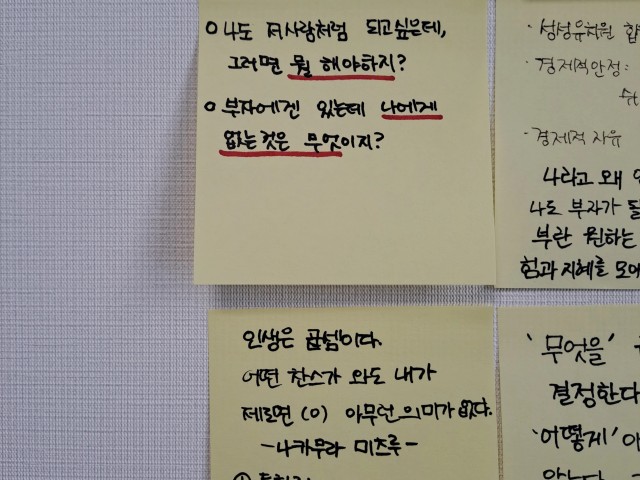 ○ 나도 저사람처럼 되고싶은데,
그러면 뭘 해야하지?
○ 부자에겐 있는데 나에게
없는것은 무엇이지?
· 경제적안정:
· 경제적 자유
나라고 왜
나도 부자가
부란 원하는
힘과 지혜를
인생은 곱셈이다.
어떤 찬스가 와도 내가
제로면 (0) 아무런 의미가 없다.
-나카무라 미츠루-
'무엇을'
결정한다
'어떻게'